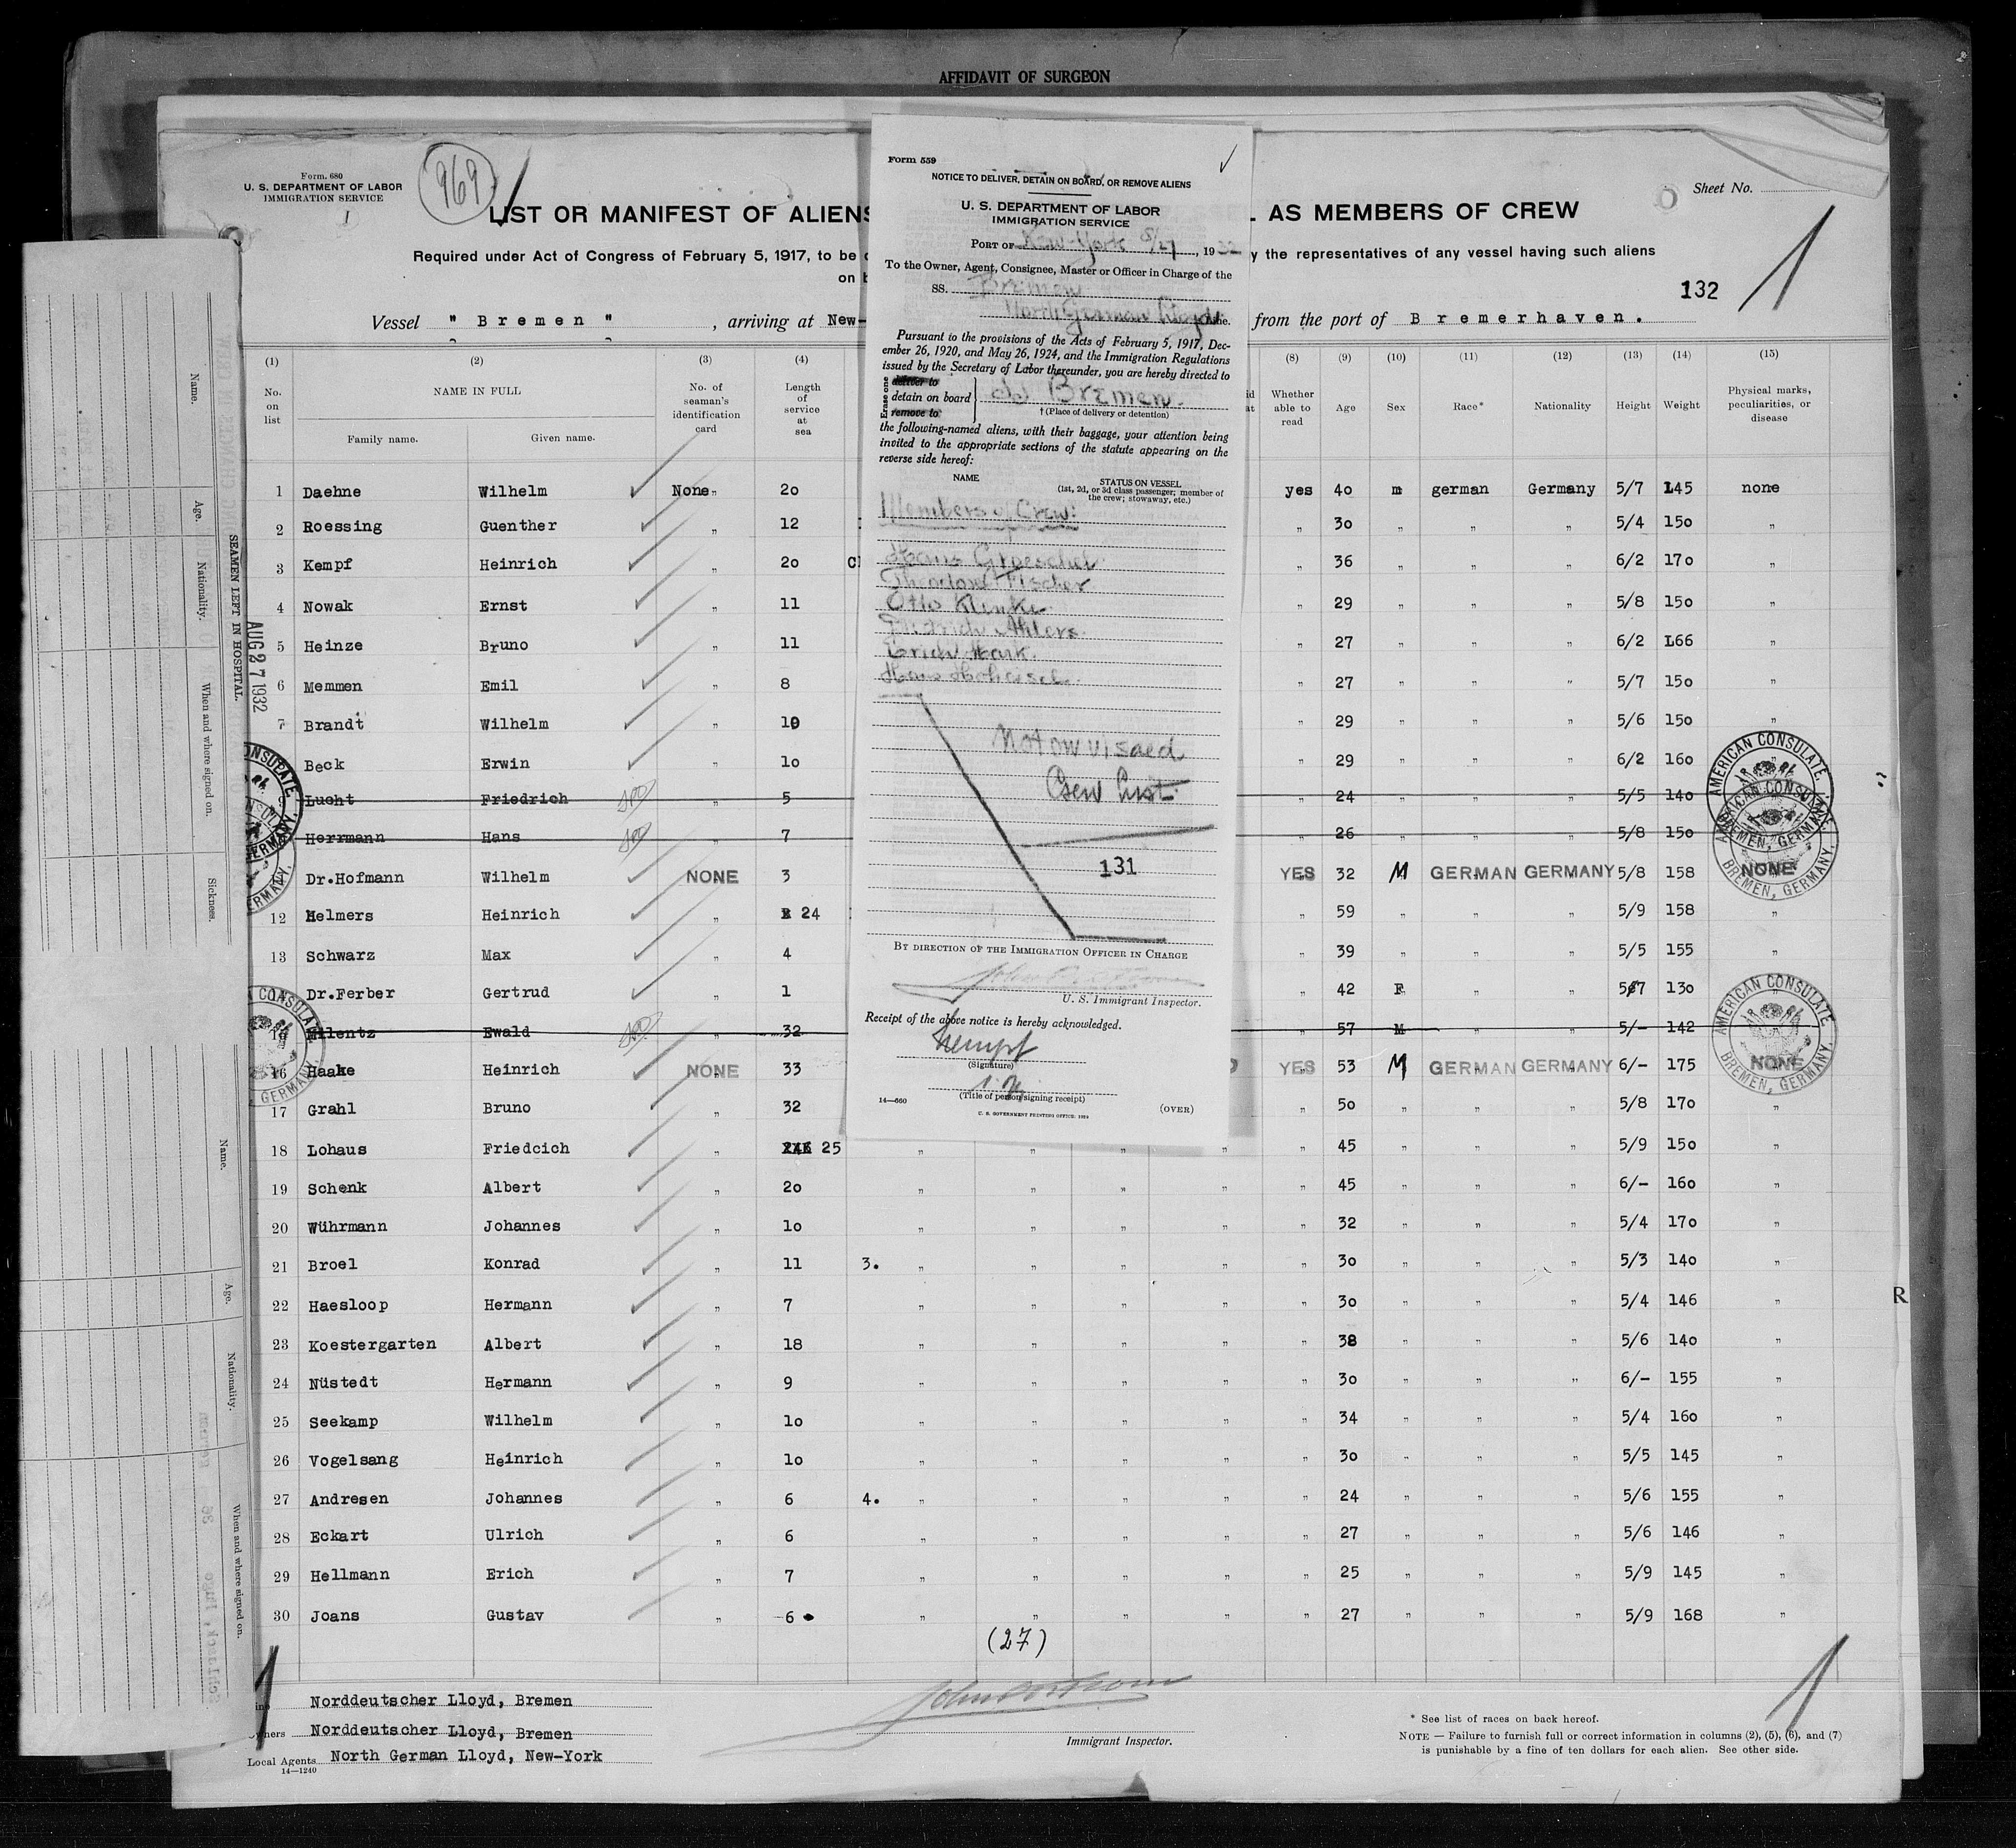 AFFIDAVIT OF SURGEON
Form. 680
U. S. DEPARTMENT OF LABOR
IMMIGRATION SERVICE
I
969
LIST OR MANIFEST OF ALIENS
L AS MEMBERS OF CREW
Sheet No.
Required under Act of Congress of February 5, 1917, to be
y the representatives of any vessel having such aliens
on b
132
Vessel " Bremen " , arriving at New-
from the port of Bremerhaven.
(1) (2) (3) (4) (8) (9) (10) (11) (12) (13) (14) (15)
No. on list
NAME IN FULL
Family name. Given name.
No. of seaman's identification card
Length of service at sea
Whether able to read
Age
Sex
Race*
Nationality
Height
Weight
Physical marks, peculiarities, or disease
1 Daehne Wilhelm None „ 2o yes 4o m german Germany 5/7 145 none
2 Roessing Guenther „ 12 „ 3o „ „ „ 5/4 15o „
3 Kempf Heinrich „ 2o „ 36 „ „ „ 6/2 17o „
4 Nowak Ernst „ 11 „ 29 „ „ „ 5/8 15o „
5 Heinze Bruno „ 11 „ 27 „ „ „ 6/2 166 „
6 Memmen Emil „ 8 „ 27 „ „ „ 5/7 15o „
7 Brandt Wilhelm „ 10 „ 29 „ „ „ 5/6 15o „
Beck Erwin „ 1o „ 29 „ „ „ 6/2 16o
Lucht Friedrich „ 5 „ 24 „ „ „ 5/5 14o
Herrmann Hans „ 7 „ 26 „ „ „ 5/8 15o
Dr.Hofmann Wilhelm NONE 3 YES 32 M GERMAN GERMANY 5/8 158 NONE
12 Helmers Heinrich „ 24 „ 59 „ „ „ 5/9 158 „
13 Schwarz Max „ 4 „ 39 „ „ „ 5/5 155 „
Dr.Ferber Gertrud „ 1 „ 42 F „ „ 5/7 130
Milentz Ewald „ 32 „ 57 M „ „ 5/- 142
16 Haake Heinrich NONE 33 YES 53 M GERMAN GERMANY 6/- 175 NONE
17 Grahl Bruno „ 32 „ 5o „ „ „ 5/8 17o „
18 Lohaus Friedcich „ 25 „ „ „ „ „ 45 „ „ „ 5/9 15o „
19 Schenk Albert „ 2o „ „ „ „ „ 45 „ „ „ 6/- 16o „
20 Wührmann Johannes „ 1o „ „ „ „ „ 32 „ „ „ 5/4 17o „
21 Broel Konrad „ 11 3. „ „ „ „ „ 3o „ „ „ 5/3 14o „
22 Haesloop Hermann „ 7 „ „ „ „ „ 3o „ „ „ 5/4 146 „
23 Koestergarten Albert „ 18 „ „ „ „ „ 38 „ „ „ 5/6 14o „
24 Nüstedt Hermann „ 9 „ „ „ „ „ 3o „ „ „ 6/- 155 „
25 Seekamp Wilhelm „ 1o „ „ „ „ „ 34 „ „ „ 5/4 16o „
26 Vogelsang Heinrich „ 1o „ „ „ „ „ 3o „ „ „ 5/5 145 „
27 Andresen Johannes „ 6 4. „ „ „ „ „ 24 „ „ „ 5/6 155 „
28 Eckart Ulrich „ 6 „ „ „ „ „ 27 „ „ „ 5/6 146 „
29 Hellmann Erich „ 7 „ „ „ „ „ 25 „ „ „ 5/9 145 „
30 Joans Gustav „ 6 „ „ „ „ „ 27 „ „ „ 5/9 168 „
(27)
Norddeutscher Lloyd, Bremen
Norddeutscher Lloyd, Bremen
Local Agents North German Lloyd, New-York
14—1240
Immigrant Inspector.
* See list of races on back hereof.
NOTE — Failure to furnish full or correct information in columns (2), (5), (6), and (7)
is punishable by a fine of ten dollars for each alien. See other side.
Form 559
NOTICE TO DELIVER, DETAIN ON BOARD, OR REMOVE ALIENS
U. S. DEPARTMENT OF LABOR
IMMIGRATION SERVICE
PORT OF New-York 8/27, 1932
To the Owner, Agent, Consignee, Master or Officer in Charge of the
SS. Bremen
North German Lloyd Line.
Pursuant to the provisions of the Acts of February 5, 1917, Dec-
ember 26, 1920, and May 26, 1924, and the Immigration Regulations
issued by the Secretary of Labor thereunder, you are hereby directed to
Erase one
deliver to
detain on board
remove to
ss Bremen.
† (Place of delivery or detention)
the following-named aliens, with their baggage, your attention being
invited to the appropriate sections of the statute appearing on the
reverse side hereof:
NAME
STATUS ON VESSEL
(1st, 2d, or 3d class passenger; member of
the crew; stowaway, etc.)
Members of Crew:
Hans Groeschel
Theodore Fischer
Otto Klinke
Friedrich Ahlers.
Erich Hark.
Hans Hoheisel.
Not on visaed
Crew List.
131
BY DIRECTION OF THE IMMIGRATION OFFICER IN CHARGE
U. S. Immigrant Inspector.
Receipt of the above notice is hereby acknowledged.
Kempf
(Signature)
(Title of person signing receipt)
14—660
U. S. GOVERNMENT PRINTING OFFICE: 1929
(OVER)
SEAMEN LEFT IN HOSPITAL.
Name. Age. Nationality. When and where signed on. Sickness.
Name. Age. Nationality. When and where signed on.
AUG 27 1932
AMERICAN CONSULATE
BREMEN, GERMANY.
AMERICAN CONSULATE
BREMEN, GERMANY.
AMERICAN CONSULATE
BREMEN, GERMANY.
R